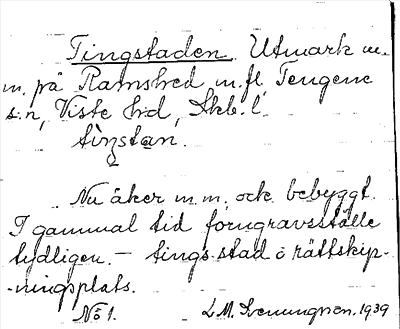 Tingstaden. Utmark m.
m. på Ramshed m.fl. Tengene
s:n, Viste hrd, Skb.l.
tiŋstan.
Nu åker m.m. ock bebyggt.
I gammal tid forngravsställe
tydligen. – tings-stad o rättskip-
-ningsplats.
No 1. L.M. Svenungsson. 1939